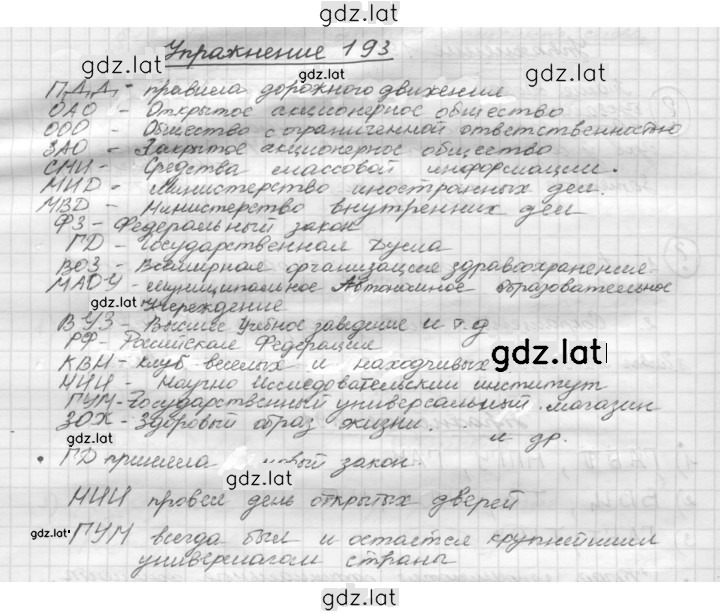 gdz.lat
Упражнение 193
gdz.lat
gdz.lat
П.Д.Д. - правила дорожного движения
ОАО - Открытое акционерное общество
ООО - Общество с ограниченной ответственностью
ЗАО - Закрытое акционерное общество
СМИ - Средства массовой информации.
МИД - Министерство иностранных дел.
МВД - Министерство внутренних дел
ФЗ - Федеральный закон
ГД - Государственная Дума
ВОЗ - Всемирная организация здравоохранения
МАОУ - муниципальное Автономное образовательное
gdz.lat учреждение
ВУЗ - Высшее Учебное заведение и т.д
РФ - Российская Федерация
КВН - Клуб веселых и находчивых
gdz.lat
НИИ - Научно Исследовательский институт
ГУМ - Государственный универсальный магазин
ЗОХ - Здоровый образ жизни.
gdz.lat и др.
ГД приняла новый закон
НИИ провел день открытых дверей
gdz.lat
ГУМ всегда был и остается крупнейшим
универмагом страны
gdz.lat